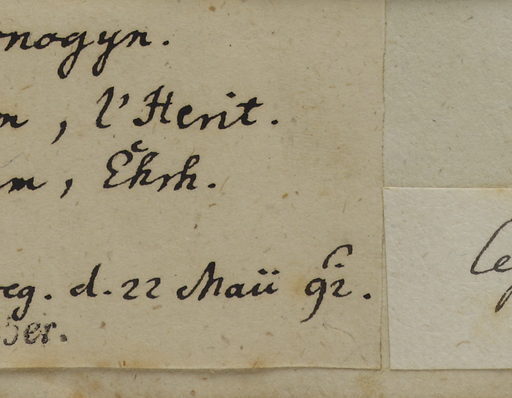 onogyn.
m, l'Herit.
um, Ehrh.
reg. d. 22 Maii 92.
ber.
le